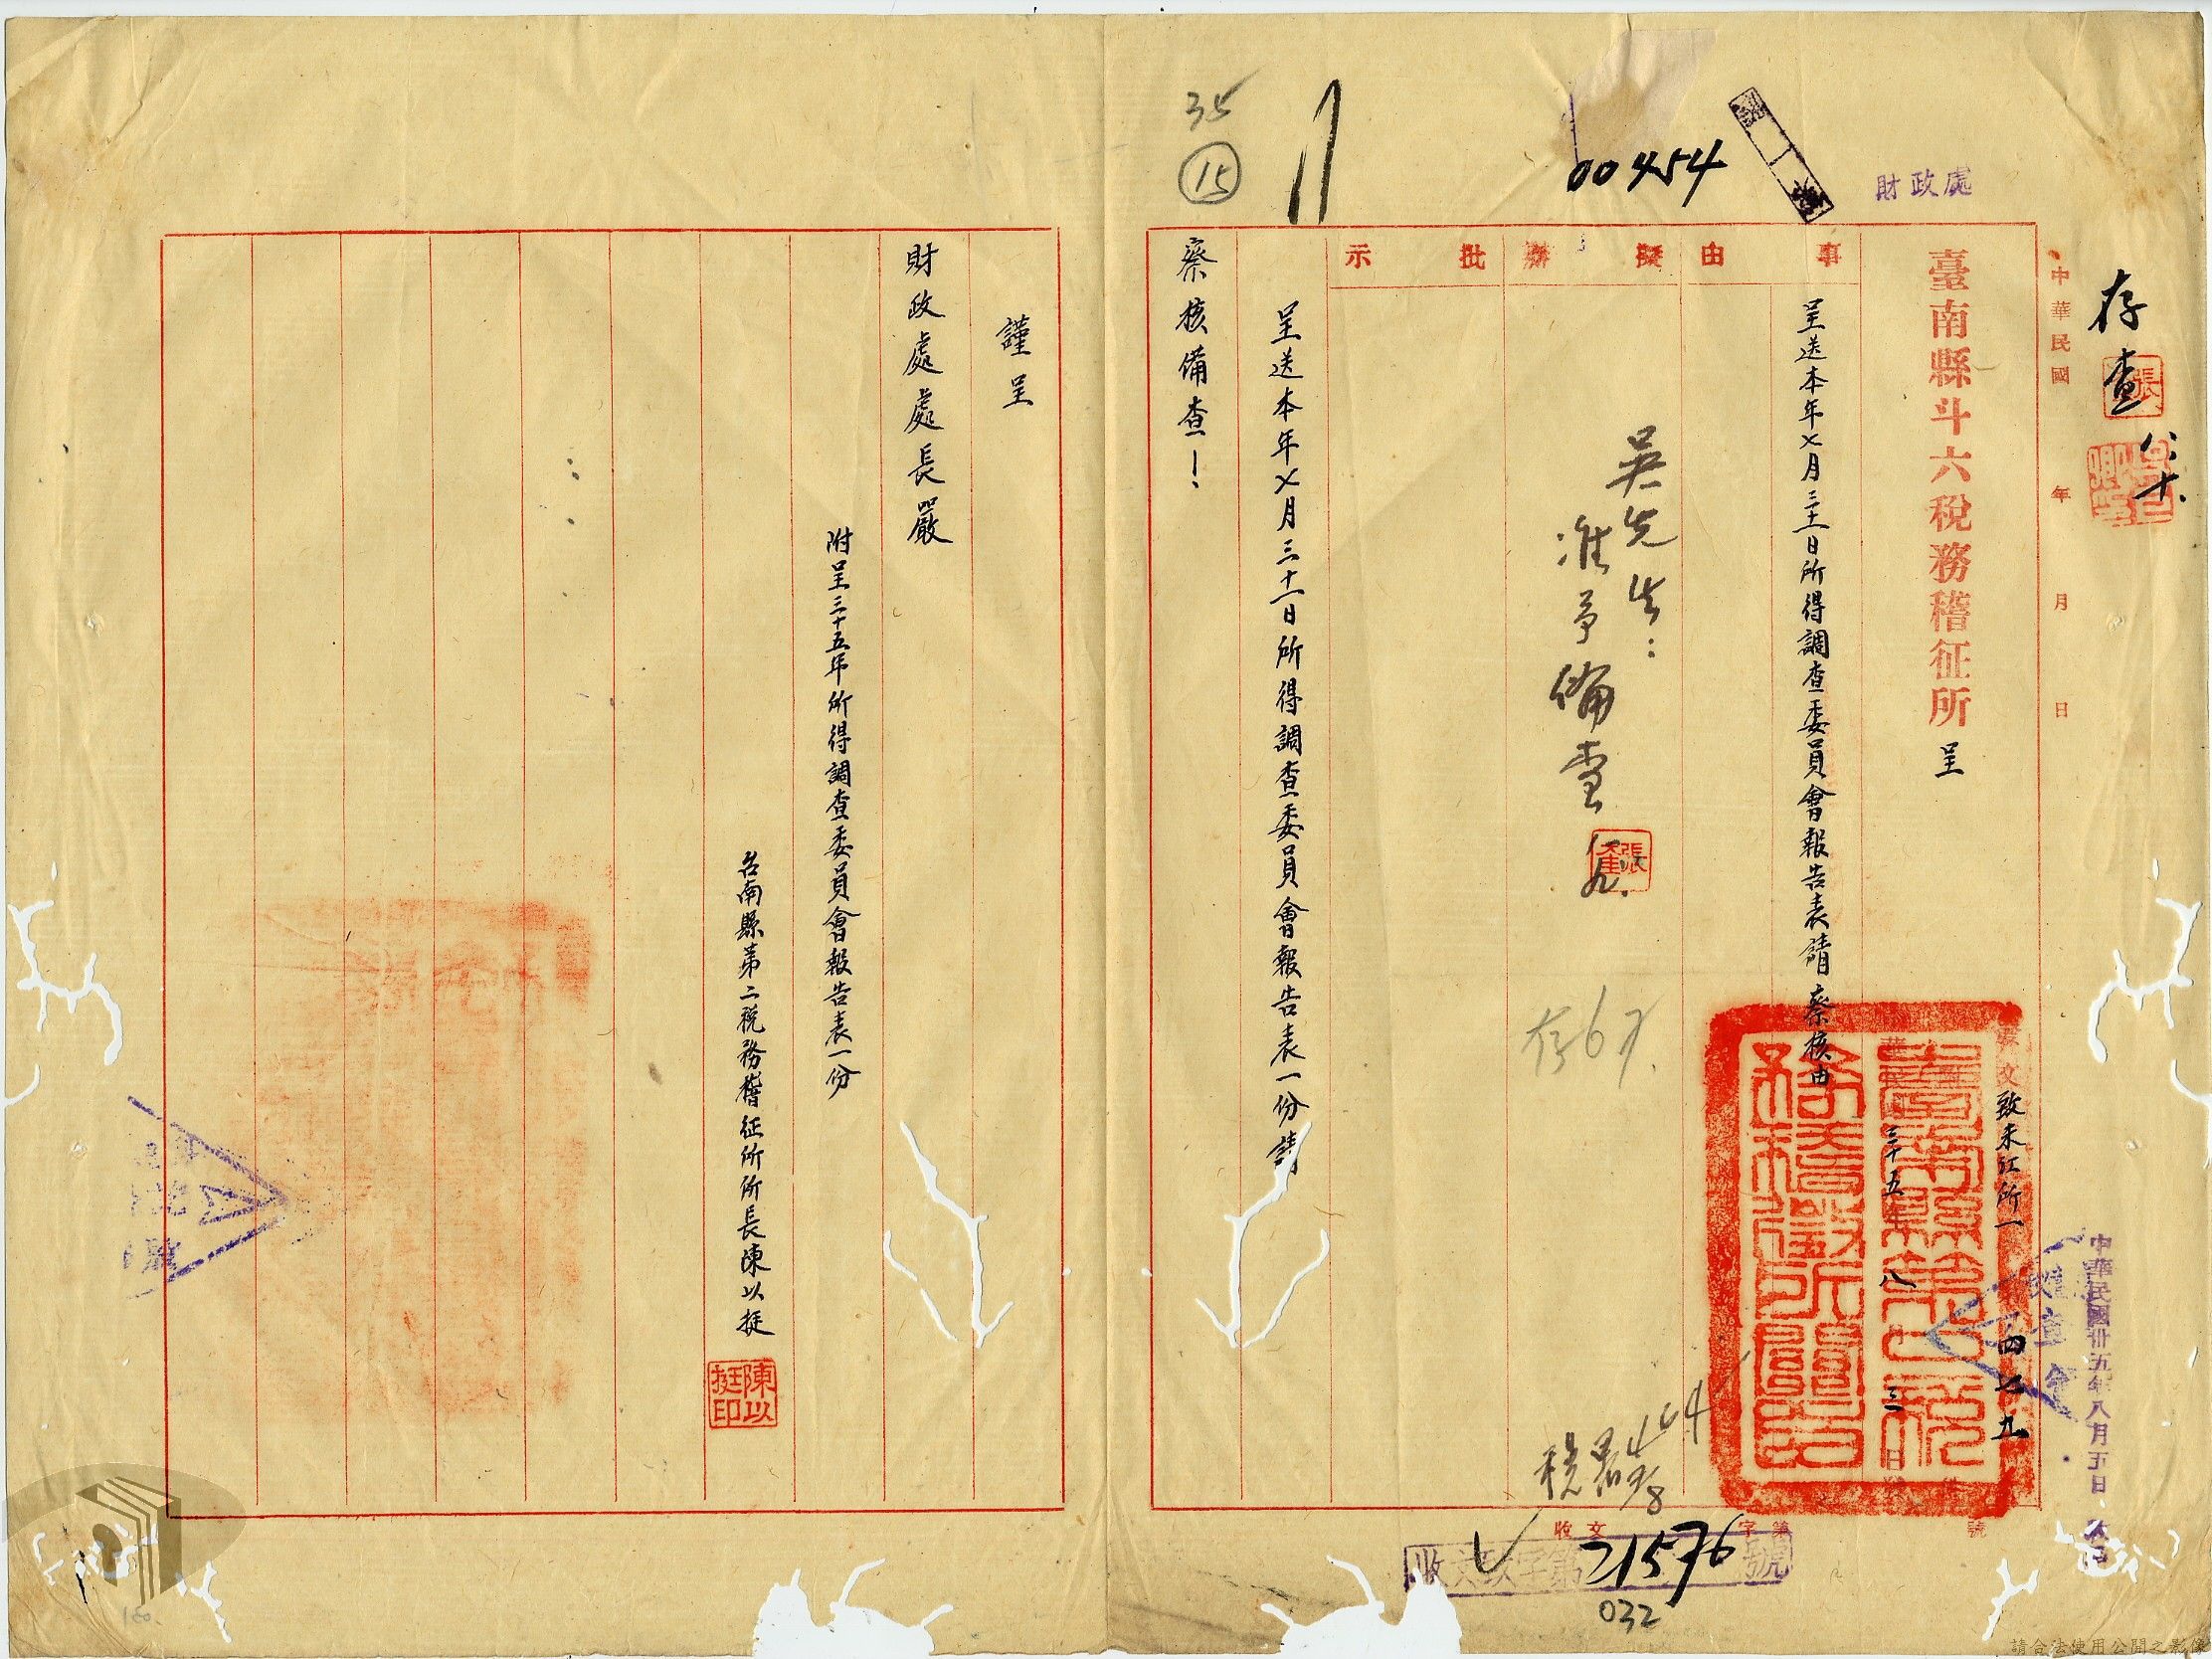 存查
八、十、
中華民國 年 月 日
中華民國卅五年八月五日
財政處
00454
35
15
臺南縣斗六稅務稽征所 呈
致未江所一
四七九
三十五年八月三日
事由
呈送本年七月三十一日所得調查委員會報告表請 察核由
擬辦
吳先生：
准予備查
八、九、
存67.
批示
呈送本年七月三十一日所得調查委員會報告表一份請
察核備查！
謹呈
財政處處長嚴
附呈三十五年所得調查委員會報告表一份
台南縣第二稅務稽征所所長陳以挺
陳以挺印
臺南縣第二稅務稽徵所關防
收文 字第 號
收文致字第21576號
032
請合法使用公開之影像